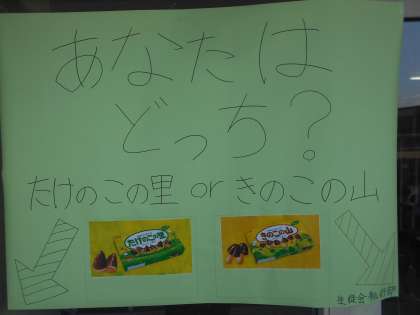 あなたは
どっち?
たけのこの里 or きのこの山
たけのこの里
きのこの山
生徒会執行部